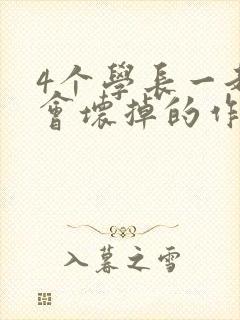 4个學長一
會壞掉的作
入暮之雪